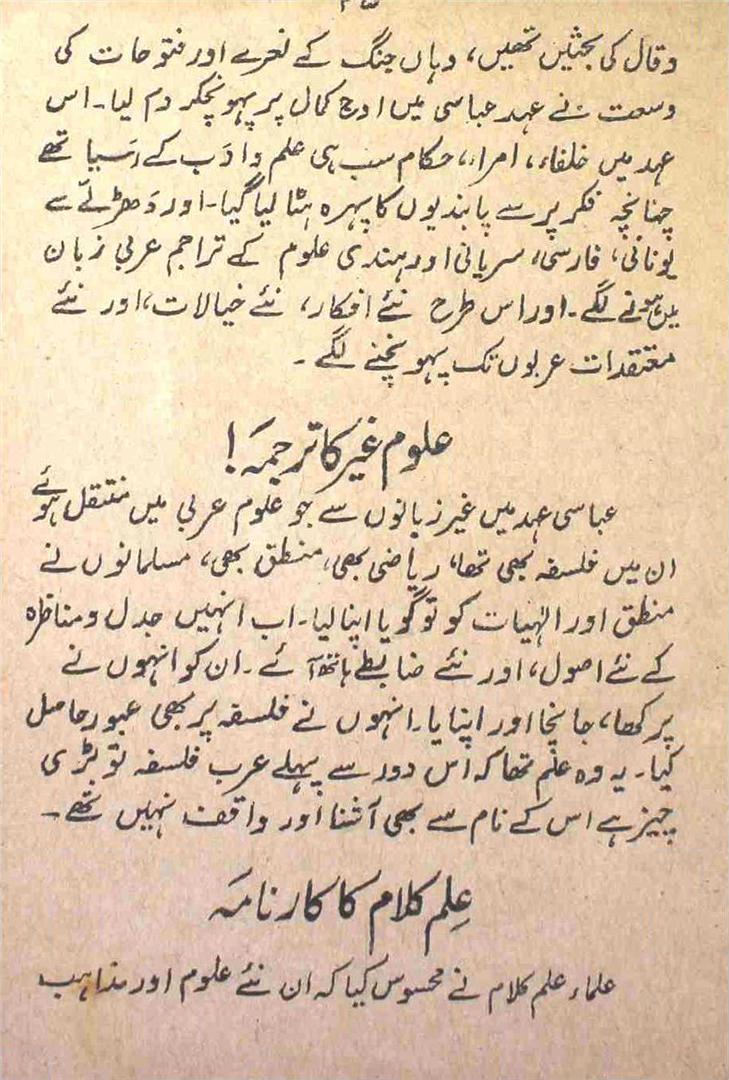 وقال کی بحثیں تھیں، وہاں جنگ کے نعرے اور فتوحات کی
وسعت نے عہد عباسی میں اوج کمال پر پہونچکر دم لیا۔ اس
عہد میں خلفاء، امراء، حکام سب ہی علم و ادب کے رسیا تھے
چنانچہ فکر پر سے پابندیوں کا پہرہ ہٹا لیا گیا۔ اور دھڑلّے سے
یونانی، فارسی، سریانی اور ہندی علوم کے تراجم عربی زبان
میں ہونے لگے۔ اور اس طرح نئے افکار، نئے خیالات، اور نئے
معتقدات عربوں تک پہونچنے لگے۔
علوم غیر کا ترجمہ!
عباسی عہد میں غیر زبانوں سے جو علوم عربی میں منتقل ہوئے
ان میں فلسفہ بھی تھا، ریاضی بھی، منطق بھی، مسلمانوں نے
منطق اور الہٰیات کو تو گویا اپنا لیا۔ اب انہیں جدل و مناظرہ
کے نئے اصول، اور نئے ضابطے ہاتھ آئے۔ ان کو انہوں نے
پرکھا، جانچا اور اپنایا۔ انہوں نے فلسفہ پر بھی عبور حاصل
کیا۔ یہ وہ علم تھا کہ اس دور سے پہلے عرب فلسفہ تو بڑی
چیز ہے اس کے نام سے بھی آشنا اور واقف نہیں تھے۔
علم کلام کا کارنامہ
علماء علم کلام نے محسوس کیا کہ ان نئے علوم اور مذاہب